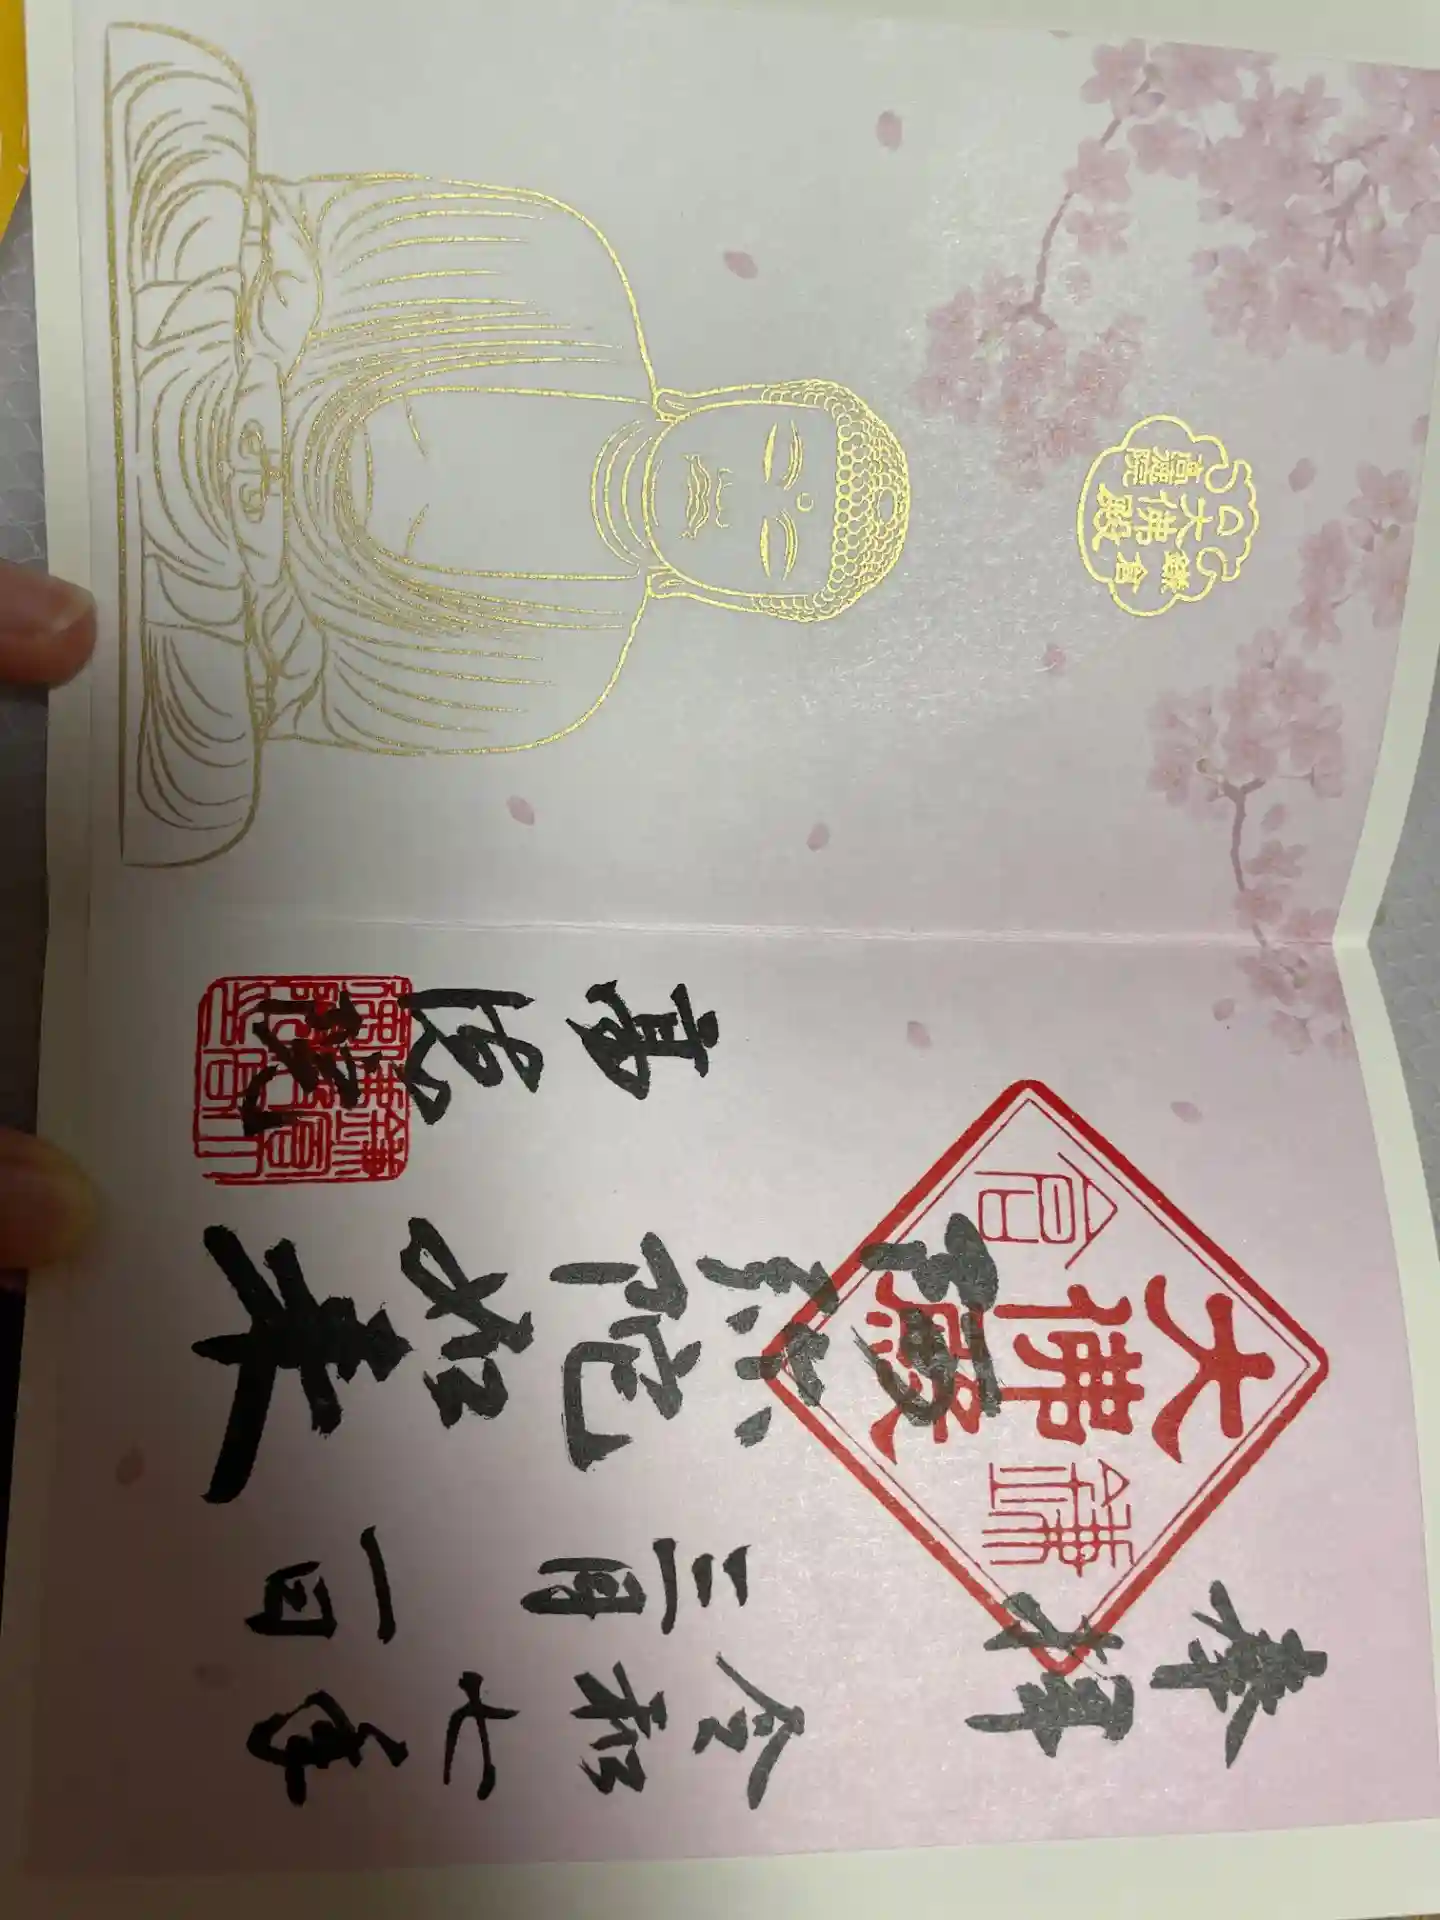 奉拝
令和七年
三月一日
鎌
大佛殿
倉
阿弥陀如来
高徳院
鎌倉
大佛殿
高徳院